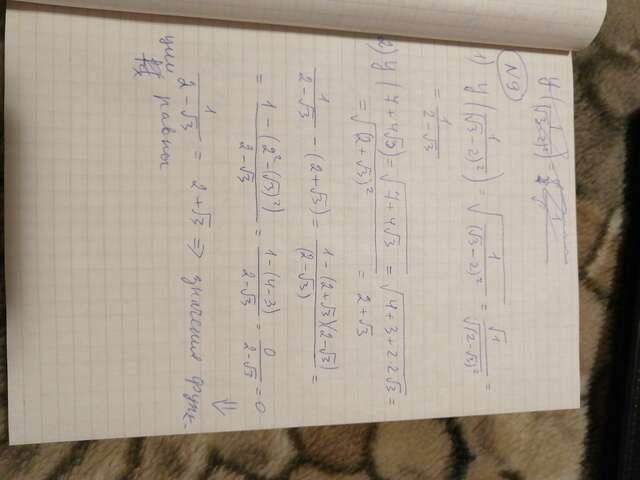 N9
1) y(1/(√3-2)²) = √(1/(√3-2)²) = √1/√(2-√3)² =
= 1/(2-√3)
2) y(7+4√3) = √(7+4√3) = √(4+3+2·2√3) =
= √(2+√3)² = 2+√3
1/(2-√3) - (2+√3) = (1-(2+√3)(2-√3))/(2-√3) =
= (1-(2²-(√3)²))/(2-√3) = (1-(4-3))/(2-√3) = 0/(2-√3) = 0
⇓
1/(2-√3) = 2+√3 ⇒ значения функ-
ции равны